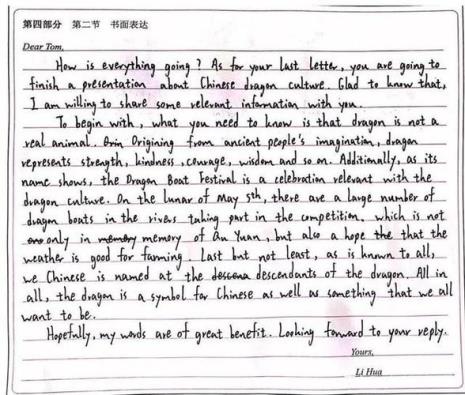 第四部分 第二节 书面表达
Dear Tom,
How is everything going? As for your last letter, you are going to
finish a presentation about Chinese dragon culture. Glad to know that,
I am willing to share some relevant information with you.
To begin with, what you need to know is that dragon is not a
real animal. Origining from ancient people's imagination, dragon
represents strength, kindness, courage, wisdom and so on. Additionally, as its
name shows, the Dragon Boat Festival is a celebration relevant with the
dragon culture. On the lunar of May 5th, there are a large number of
dragon boats in the rivers taking part in the competition, which is not
only in memory of Qu Yuan, but also a hope that the
weather is good for farming. Last but not least, as is known to all,
we Chinese is named at the descendants of the dragon. All in
all, the dragon is a symbol for Chinese as well as something that we all
want to be.
Hopefully, my words are of great benefit. Looking forward to your reply.
Yours,
Li Hua